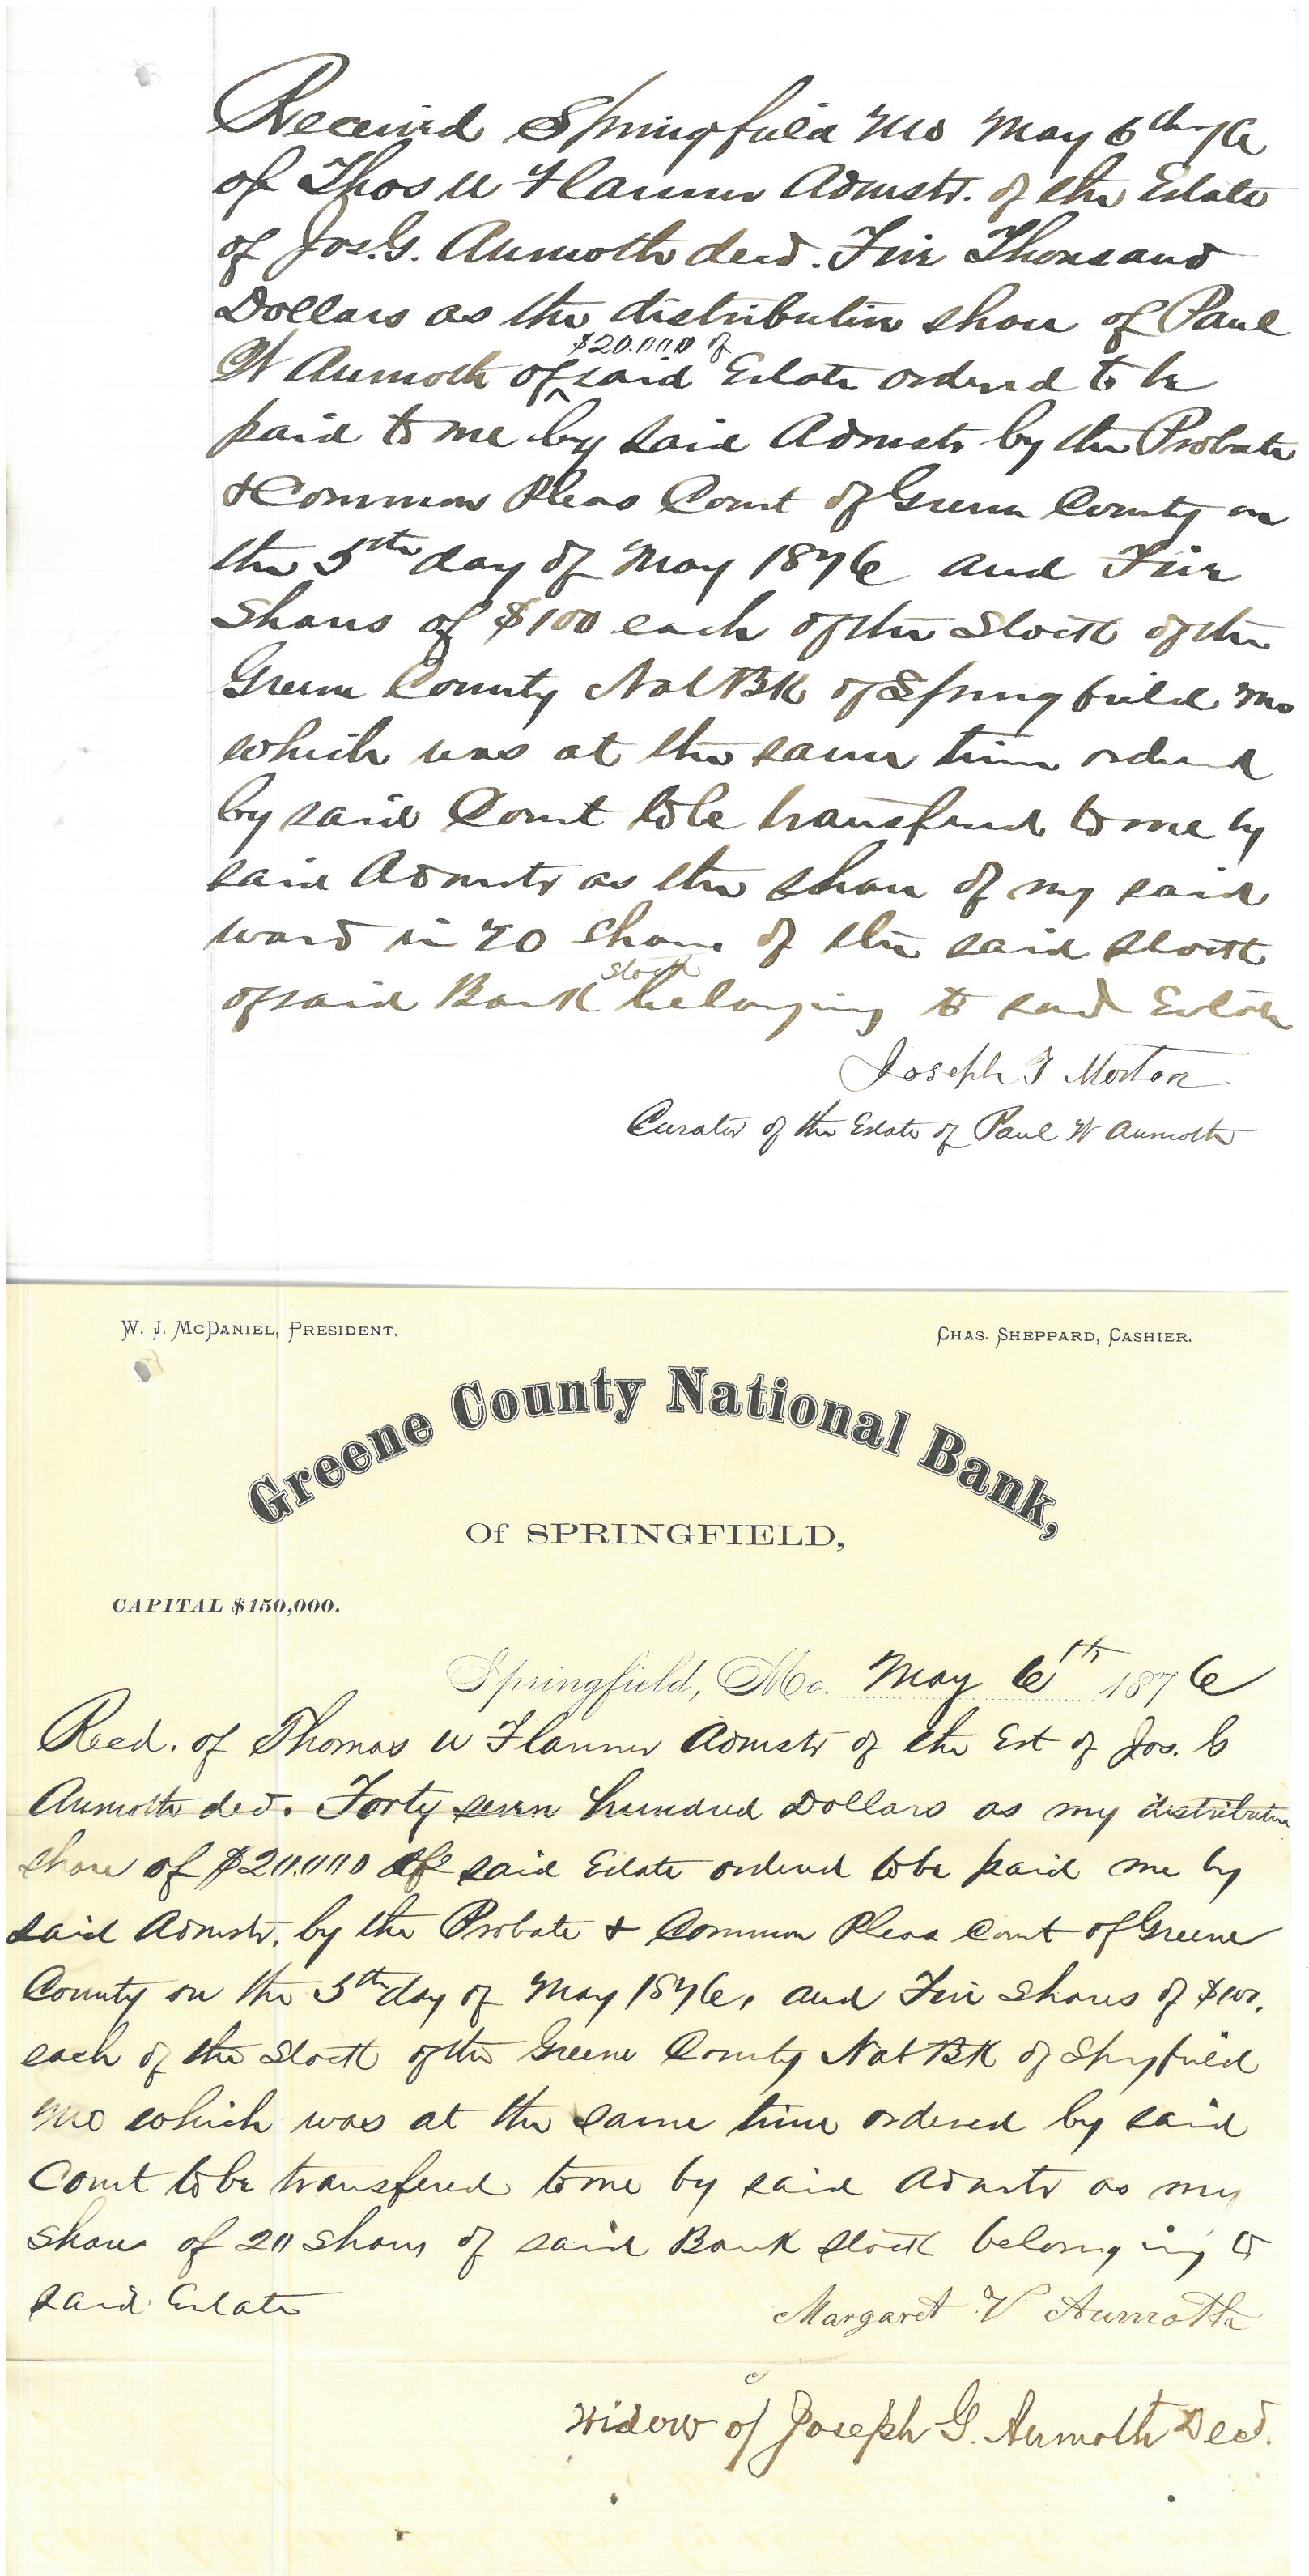 Received Springfield Mo May 6th 76
of Thos W Flanner Admstr. of the Estate
of Jos. G. Aumoth decd. Five Thousand
Dollars as the distributive share of Paul
$20.000 of
W Aumoth of ^ said Estate ordered to be
paid to me by said Admstr by the Probate
& Common Pleas Court of Greene County on
the 5th day of May 1876 and Five
Shares of $100 each of the Stock of the
Greene County Nat Bk of Springfield Mo
which was at the same time ordered
by said Court to be transfered to me by
said Admstr as the share of my said
ward in 20 Shares of the said Stock
Stock
of said Bank belonging to said Estate
Joseph T Morton
Curator of the Estate of Paul W Aumoth
W. J. McDaniel, President.
Chas. Sheppard, Cashier.
Greene County National Bank,
Of SPRINGFIELD,
CAPITAL $150,000.
Springfield, Mo. May 6th 1876
Recd. of Thomas W Flanner Admstr of the Est of Jos. G
Aumoth decd. Forty seven hundred Dollars as my distributive
share of $20.000 of said Estate ordered to be paid me by
said Admstr. by the Probate & Common Pleas Court of Greene
County on the 5th day of May 1876, and Five Shares of $100.
each of the Stock of the Greene County Nat Bk of Spgfield
Mo which was at the same time ordered by said
Court to be transfered to me by said Admstr as my
Share of 20 Shares of said Bank Stock belonging to
said Estate
Margaret V Aumoth
widow of Joseph G. Aumoth Decd.